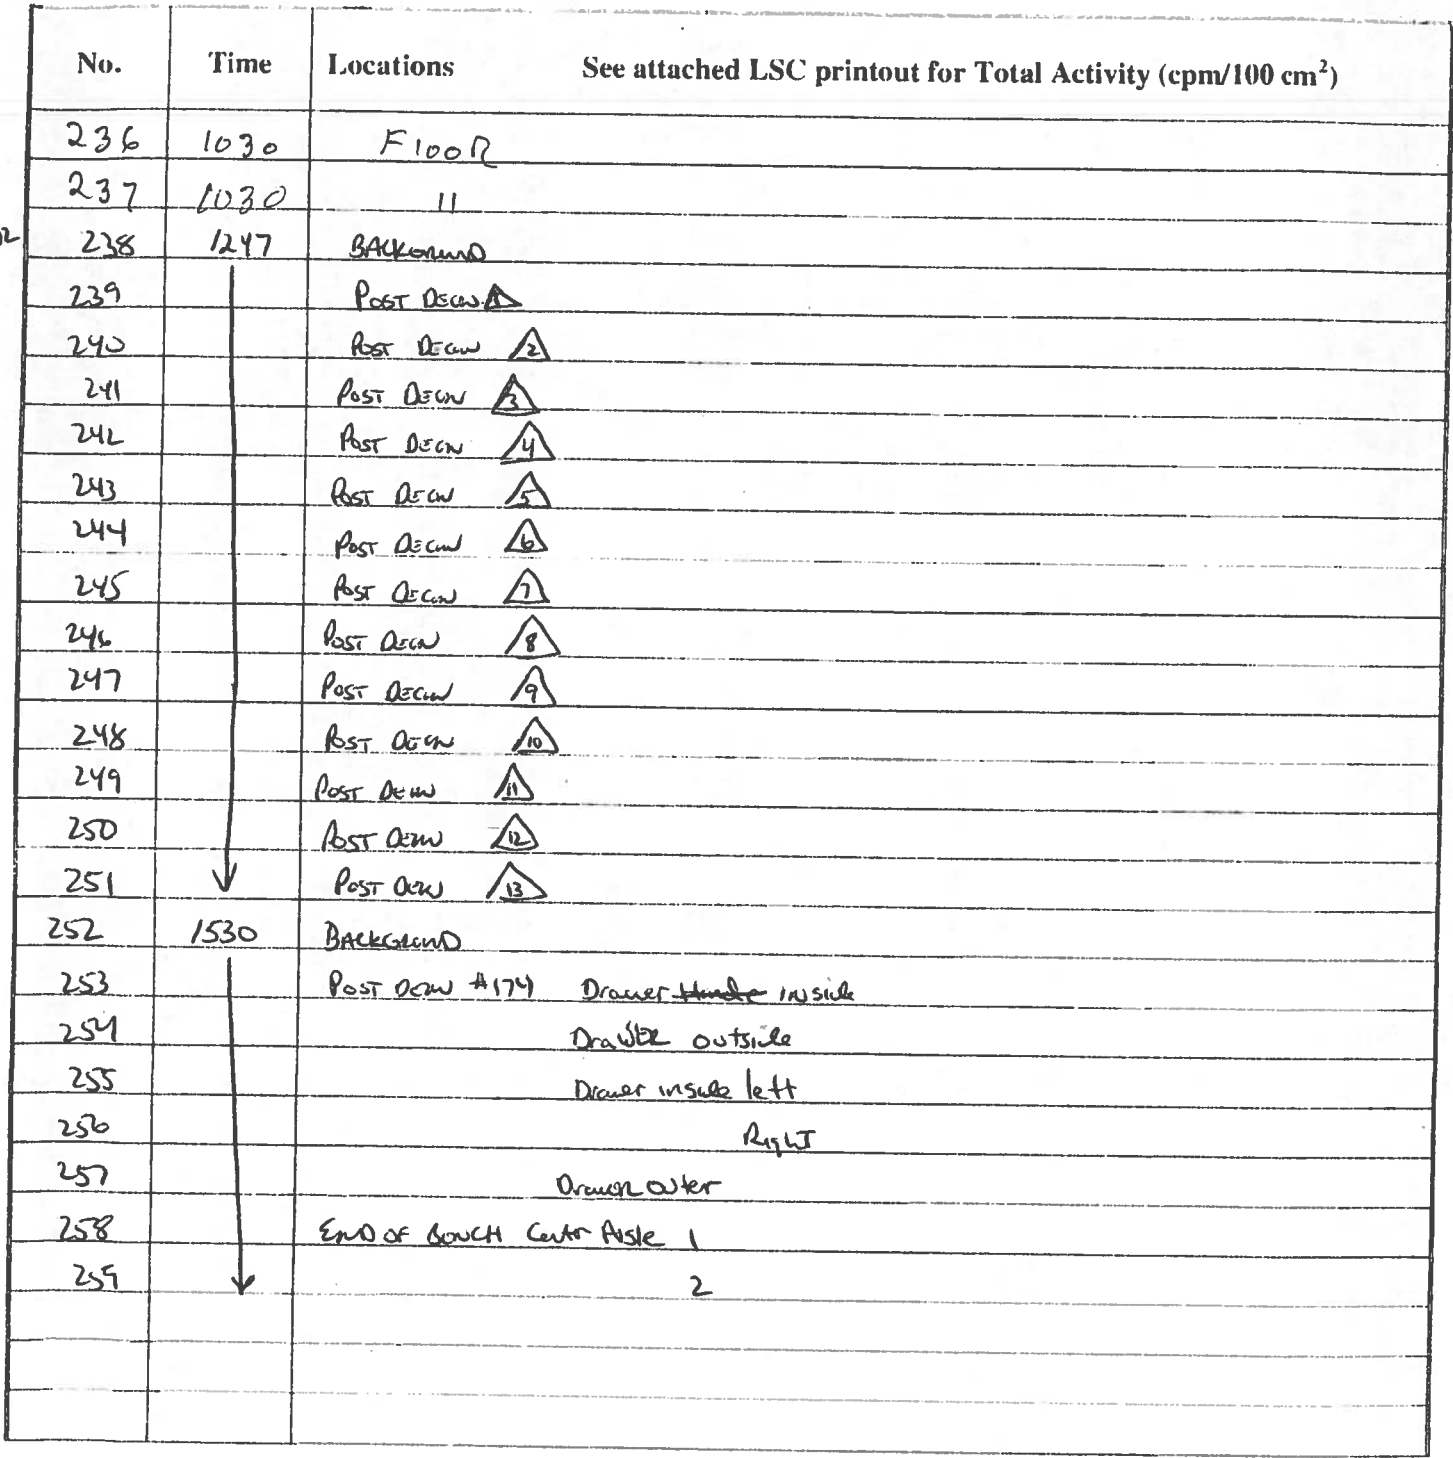 No. Time Locations See attached LSC printout for Total Activity (cpm/100 cm²)
236 1030 Floor
237 1030 "
238 1247 BACKGROUND
239 POST DECON 1
240 POST DECON 2
241 POST DECON 3
242 POST DECON 4
243 POST DECON 5
244 POST DECON 6
245 POST DECON 7
246 POST DECON 8
247 POST DECON 9
248 POST DECON 10
249 POST DECON 11
250 POST DECON 12
251 POST DECON 13
252 1530 BACKGROUND
253 POST DECON #174 Drawer Handle inside
254 Drawer outside
255 Drawer inside left
256 Right
257 Drawer outer
258 END OF BENCH Centr Aisle 1
259 2